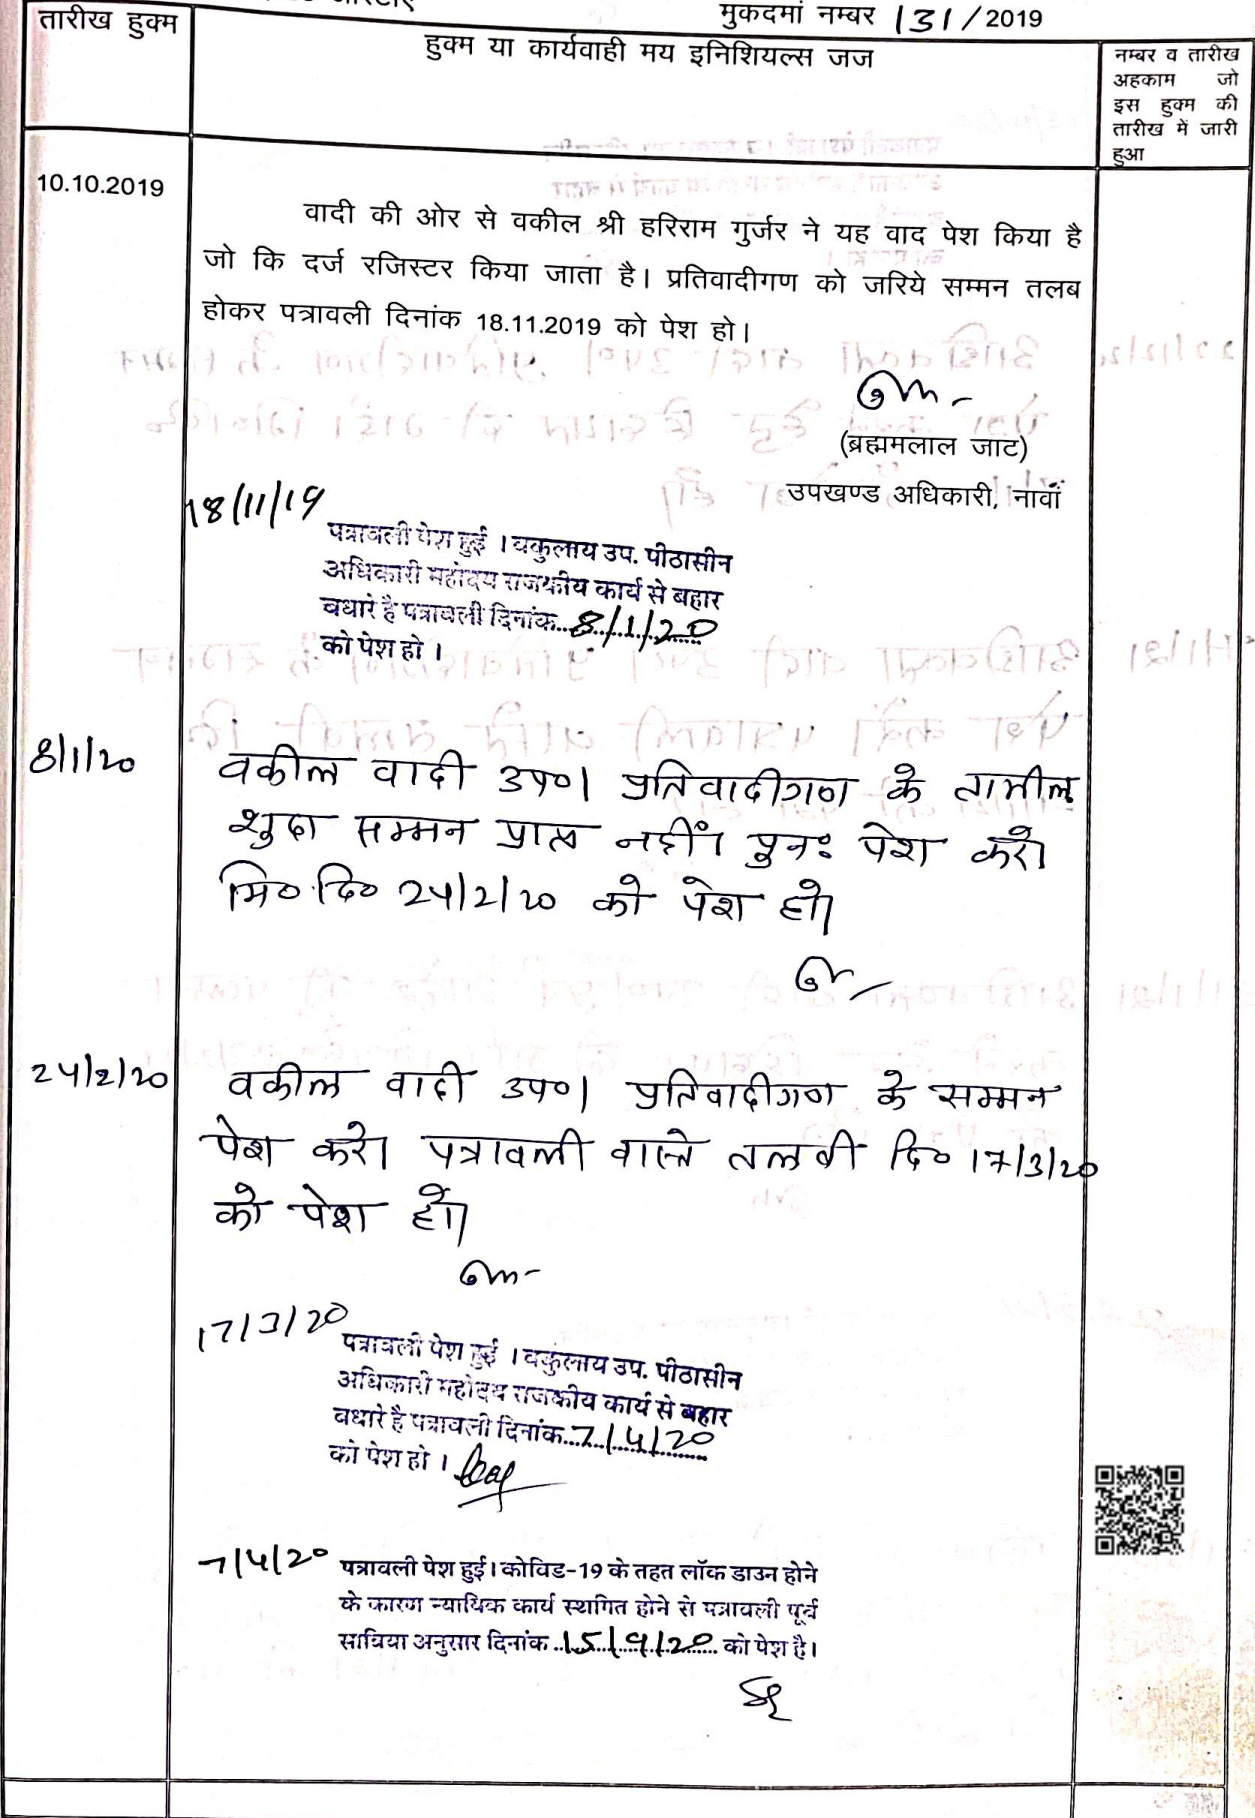 मुकदमां नम्बर 131/2019
तारीख हुक्म
हुक्म या कार्यवाही मय इनिशियल्स जज
नम्बर व तारीख
अहकाम जो
इस हुक्म की
तारीख में जारी
हुआ
10.10.2019
वादी की ओर से वकील श्री हरिराम गुर्जर ने यह वाद पेश किया है
जो कि दर्ज रजिस्टर किया जाता है। प्रतिवादीगण को जरिये सम्मन तलब
होकर पत्रावली दिनांक 18.11.2019 को पेश हो।
(ब्रह्ममलाल जाट)
उपखण्ड अधिकारी, नावाँ
18/11/19
पत्रावली पेश हुई । वकुलाय उप. पीठासीन
अधिकारी महोदय राजकीय कार्य से बहार
वधारे है पत्रावली दिनांक 8/1/20
को पेश हो ।
8/1/20
वकील वादी उप०। प्रतिवादीगण के तामील
शुदा सम्मन प्राप्त नहीं। पुनः पेश करे।
मि० दि० 24/2/20 को पेश हो।
24/2/20
वकील वादी उप०। प्रतिवादीगण के सम्मन
पेश करे। पत्रावली वास्ते तलबी दि० 17/3/20
को पेश हो।
17/3/20
पत्रावली पेश हुई । वकुलाय उप. पीठासीन
अधिकारी महोदय राजकीय कार्य से बहार
वधारे है पत्रावली दिनांक 7/4/20
को पेश हो ।
7/4/20
पत्रावली पेश हुई। कोविड-19 के तहत लॉक डाउन होने
के कारण न्यायिक कार्य स्थगित होने से पत्रावली पूर्व
अनुसार दिनांक 15/9/20 को पेश है।